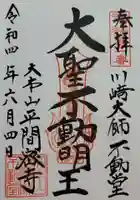 奉拝
川崎大師不動堂
大聖不動明王
大本山平間寺
令和四年六月四日